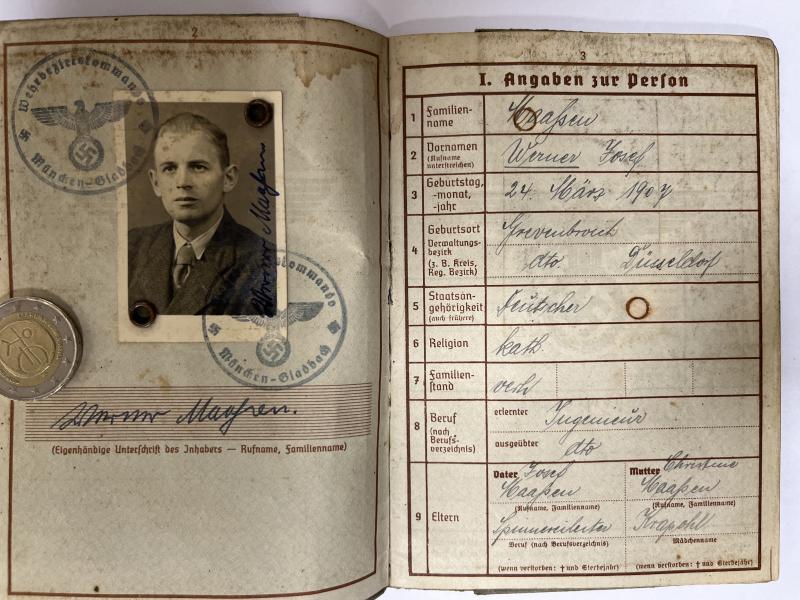 2
Wehrbezirkskommando
München-Gladbach
Werner Maaßen
Wehrbezirkskommando
München-Gladbach
Werner Maaßen.
(Eigenhändige Unterschrift des Inhabers — Rufname, Familienname)
3
I. Angaben zur Person
1 Familien-
name
Maaßen
2 Vornamen
(Rufname
unterstreichen)
Werner Josef
3 Geburtstag,
-monat,
-jahr
24. März 1907
4 Geburtsort
Verwaltungs-
bezirk
(z. B. Kreis,
Reg. Bezirk)
Grevenbroich
dto. Düsseldorf
5 Staatsan-
gehörigkeit
(auch frühere)
Deutscher
6 Religion
kath.
7 Familien-
stand
verh
8 Beruf
(nach
Berufs-
verzeichnis)
erlernter Ingenieur
ausgeübter dto
9 Eltern
Vater Josef
Maaßen
(Rufname, Familienname)
Spinnereileiter
Beruf (nach Berufsverzeichnis)
(wenn verstorben: † und Sterbejahr)
Mutter Christine
Maaßen
(Rufname, Familienname)
Krapohl
Mädchenname
(wenn verstorben: † und Sterbejahr)